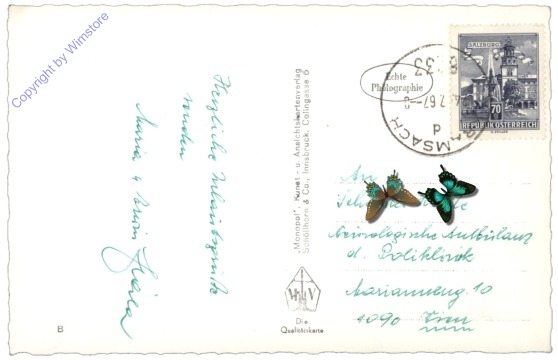 Copyright by Wimstore
Herzliche Urlaubsgrüße
senden
Maria &
"Monopol", Kunst- u. Ansichtskartenverlag
Schöllhorn & Co., Innsbruck, Collingasse 6
Echte
Photographie
SALZBURG
70
REPUBLIK ÖSTERREICH
RAMSACH
d
An
Neurologische Ambulanz
d. Poliklinik
Marianneng. 10
1090 Wien
W V
Die
Qualitätskarte
B